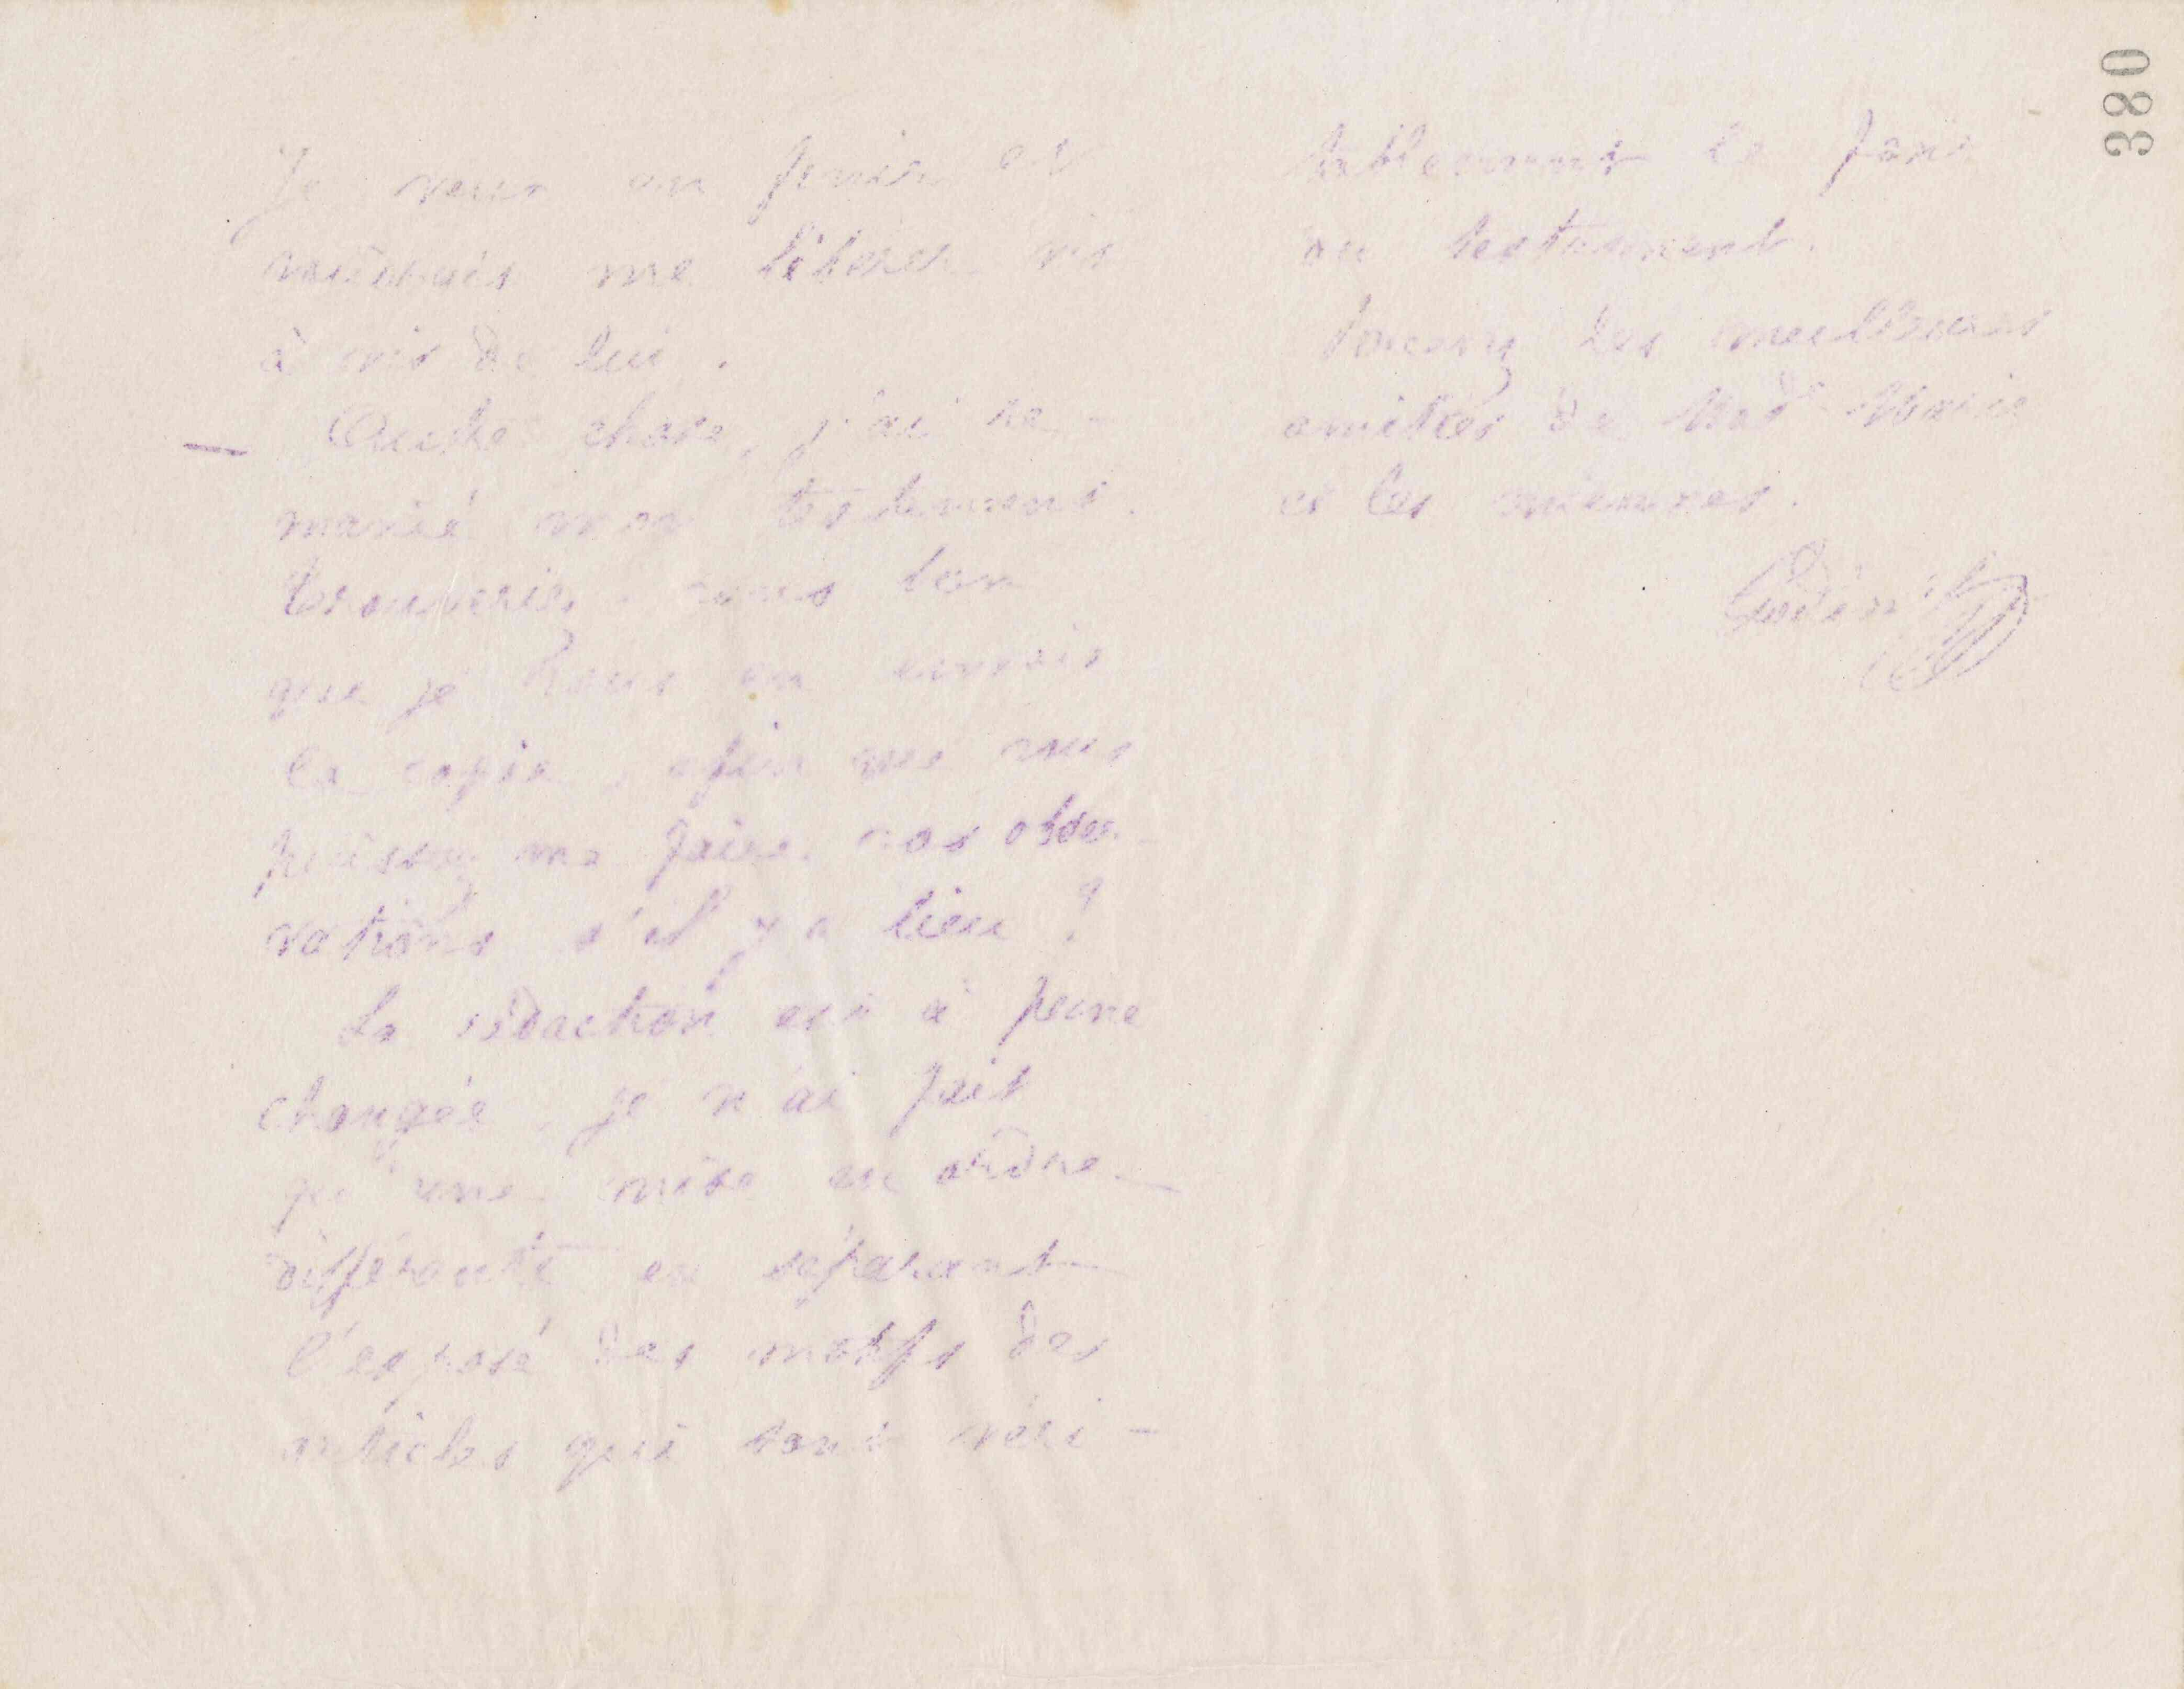 Je veux en finir et
vis
à vis de lui.
— Autre chose, j'ai re-
manié mon testament.
Trouveriez-vous bon
que je vous en envoie
la copie, afin que vous
puissiez me faire vos obser-
vations s'il y a lieu ?
La rédaction est à peine
changée, je n'ai fait
qu'une mise en ordre
différente en séparant
l'exposé des motifs des
articles qui sont véri-
tablement le fond
du testament.
Recevez les meilleures
amitiés de Mad Marie
et les miennes.
Godin
380